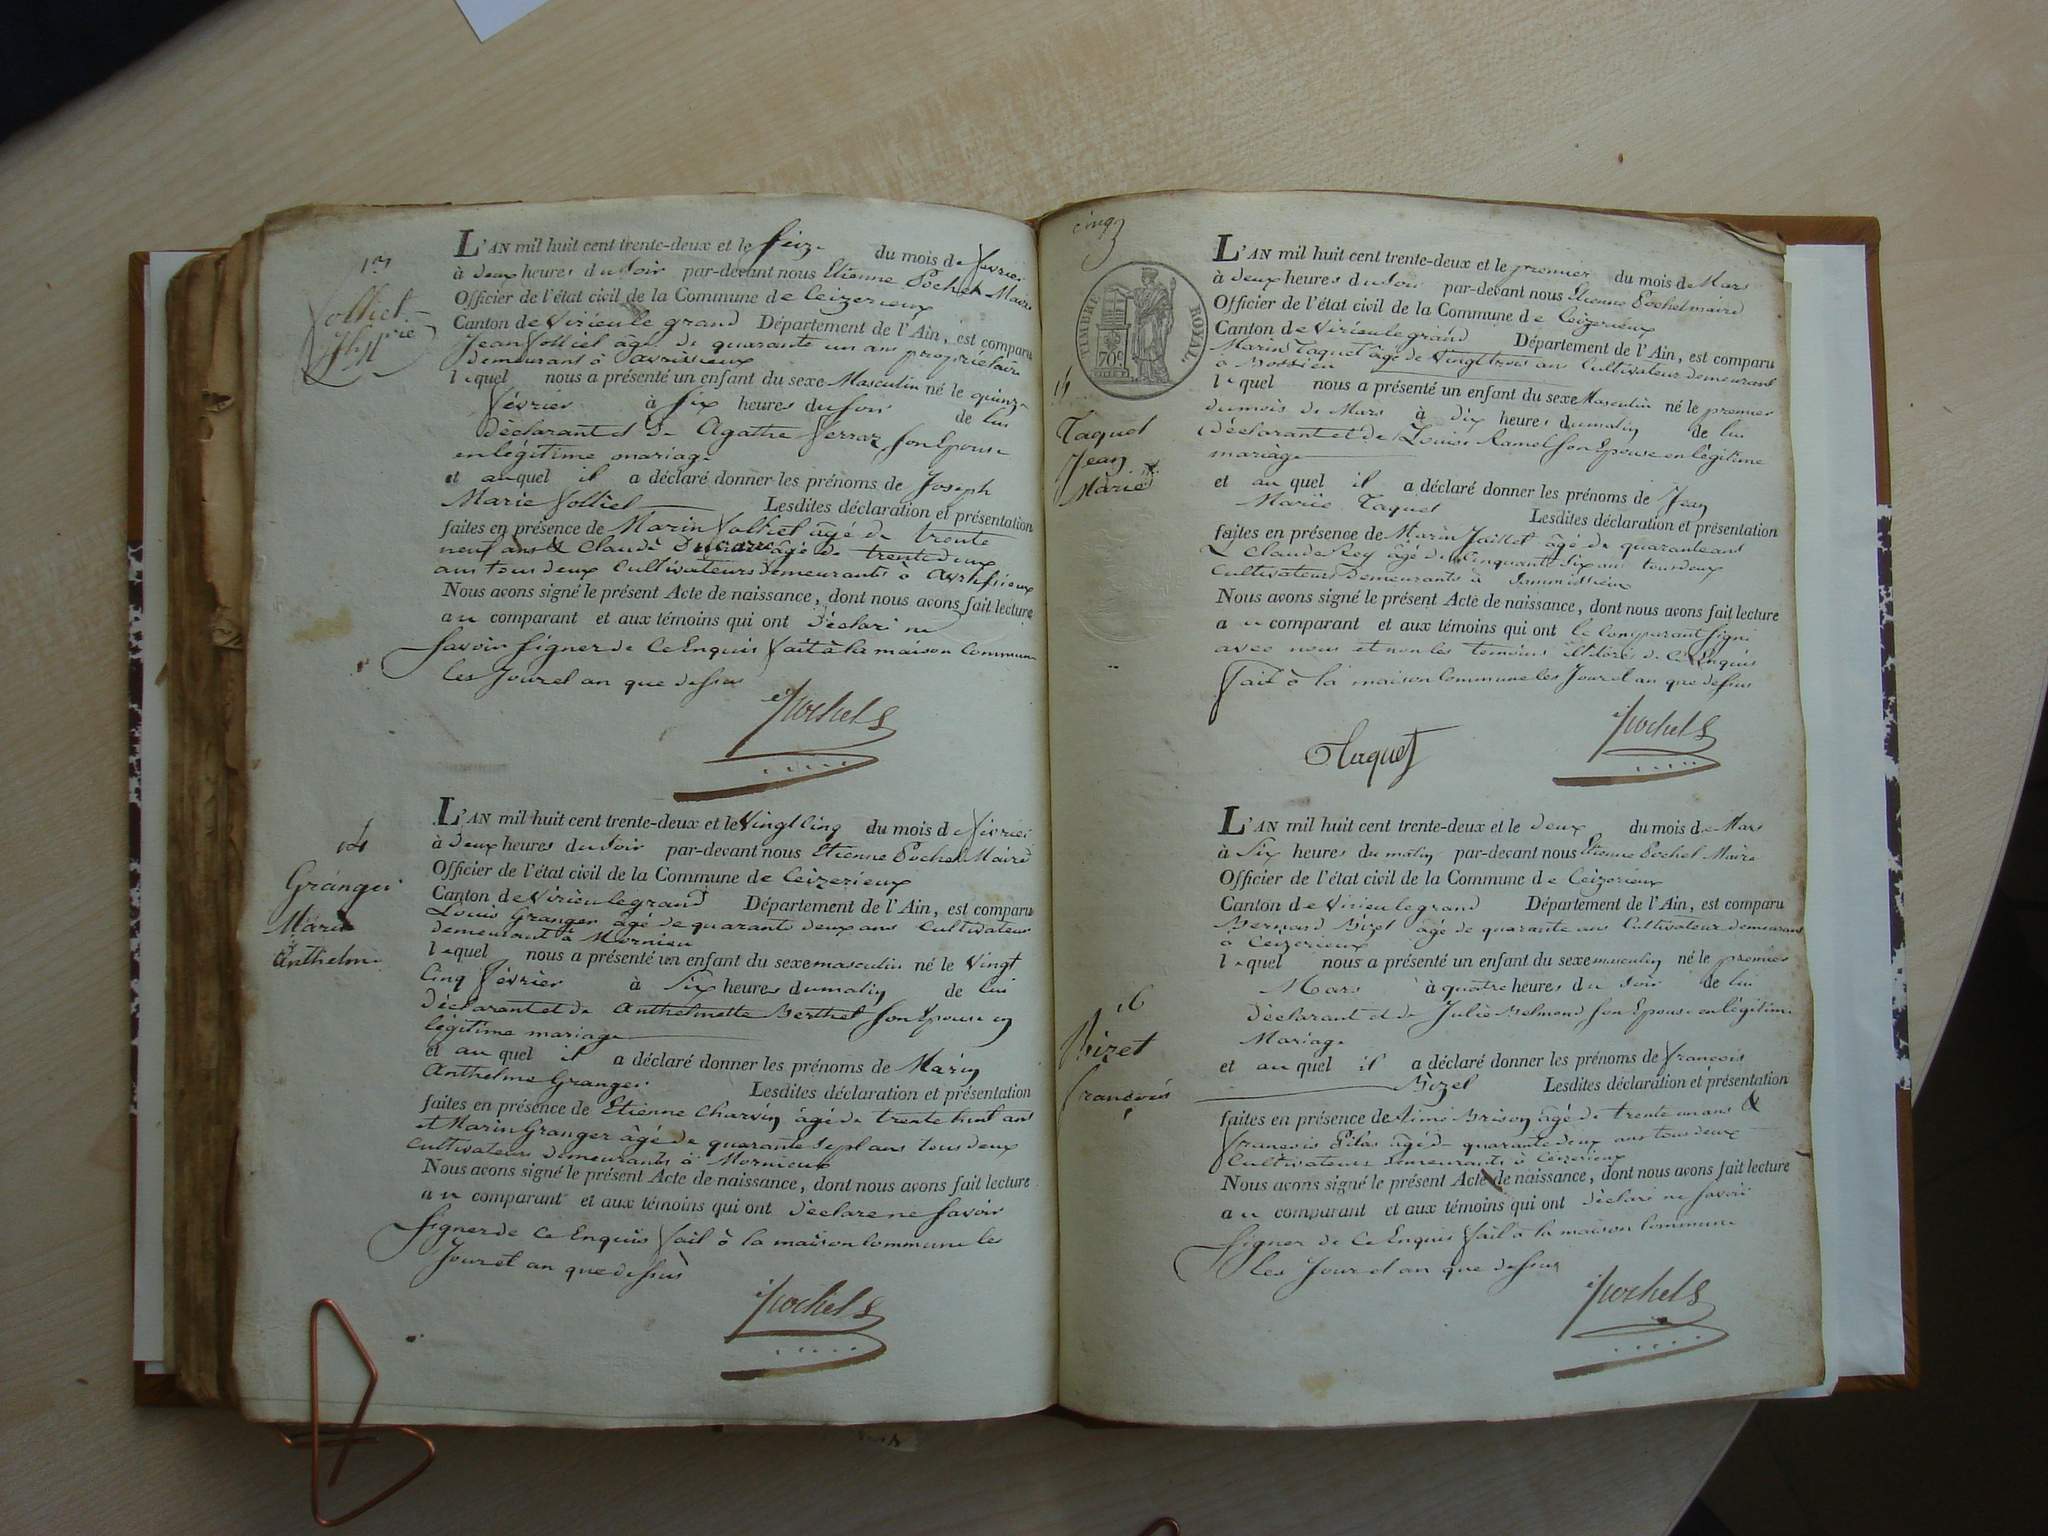 13
Volliet
Jph Mie
L'AN mil huit cent trente-deux et le seize du mois de février
à deux heures du soir par-devant nous Etienne Pochet Maire
Officier de l'état civil de la Commune de Ceizerieux
Canton de Virieu le grand Département de l'Ain, est comparu
Jean Volliet âgé de quarante un ans propriétaire
demeurant à avrissieux
lequel nous a présenté un enfant du sexe Masculin né le quinze
février à six heures du soir de lui
déclarant et de Agathe Verraz son Epouse
en légitime mariage
et auquel il a déclaré donner les prénoms de Joseph
Marie Volliet Lesdites déclaration et présentation
faites en présence de Marin Volliet âgé de trente
neuf ans & Claude âgé de trente deux
ans tous deux Cultivateurs demeurants à avrissieux
Nous avons signé le présent Acte de naissance, dont nous avons fait lecture
au comparant et aux témoins qui ont déclaré ne
savoir signer de ce Enquis fait à la maison Commune
les Jour et an que dessus
Pochet
14
Granger
Marin
Anthelme
L'AN mil huit cent trente-deux et le Vingt Cinq du mois de février
à deux heures du soir par-devant nous Etienne Pochet Maire
Officier de l'état civil de la Commune de Ceizerieux
Canton de Virieu le grand Département de l'Ain, est comparu
Louis Granger âgé de quarante deux ans Cultivateur
demeurant à Mornieu
lequel nous a présenté un enfant du sexe masculin né le Vingt
Cinq février à six heures du matin de lui
déclarant et de Anthelmette Berthet son Epouse en
légitime mariage
et auquel il a déclaré donner les prénoms de Marin
Anthelme Granger Lesdites déclaration et présentation
faites en présence de Etienne Charvin âgé de trente huit ans
et Marin Granger âgé de quarante sept ans tous deux
Cultivateurs demeurants à Mornieux
Nous avons signé le présent Acte de naissance, dont nous avons fait lecture
au comparant et aux témoins qui ont déclaré ne savoir
signer de ce Enquis fait à la maison Commune les
Jour et an que dessus
Pochet
cinq
TIMBRE ROYAL
70c
15
Taquet
Jean
Marie
L'AN mil huit cent trente-deux et le premier du mois de Mars
à deux heures du soir par-devant nous Etienne Pochet maire
Officier de l'état civil de la Commune de Ceizerieux
Canton de Virieu le grand Département de l'Ain, est comparu
Marin Taquet âgé de Vingt trois ans Cultivateur demeurant
à
lequel nous a présenté un enfant du sexe Masculin né le premier
du mois de Mars à dix heures du matin de lui
déclarant et de Louise Ramel son Epouse en légitime
mariage
et auquel il a déclaré donner les prénoms de Jean
Marie Taquet Lesdites déclaration et présentation
faites en présence de Marin Jaillet âgé de quarante ans
& Claude Rey âgé de Cinquante six ans tous deux
Cultivateurs demeurants à
Nous avons signé le présent Acte de naissance, dont nous avons fait lecture
au comparant et aux témoins qui ont le Comparant signé
avec nous et non les temoins illitérés de ce Enquis
fait à la maison Commune les Jour et an que dessus
Pochet
Taquet
16
Bizet
francois
L'AN mil huit cent trente-deux et le deux du mois de Mars
à Six heures du matin par-devant nous Etienne Pochet Maire
Officier de l'état civil de la Commune de Ceizerieux
Canton de Virieu le grand Département de l'Ain, est comparu
Bernard Bizet âgé de quarante ans Cultivateur demeurant
à Ceizerieux
lequel nous a présenté un enfant du sexe masculin né le premier
Mars à quatre heures du soir de lui
déclarant et de Julie Belmond son Epouse en légitime
Mariage
et auquel il a déclaré donner les prénoms de francois
Bizet Lesdites déclaration et présentation
faites en présence de Aimé Brison âgé de trente un ans &
francois Pilas âgé de quarante deux ans tous deux
Cultivateurs demeurants à Ceizerieux
Nous avons signé le présent Acte de naissance, dont nous avons fait lecture
au comparant et aux témoins qui ont déclaré ne savoir
signer de ce Enquis fait à la maison Commune
les Jour et an que dessus
Pochet